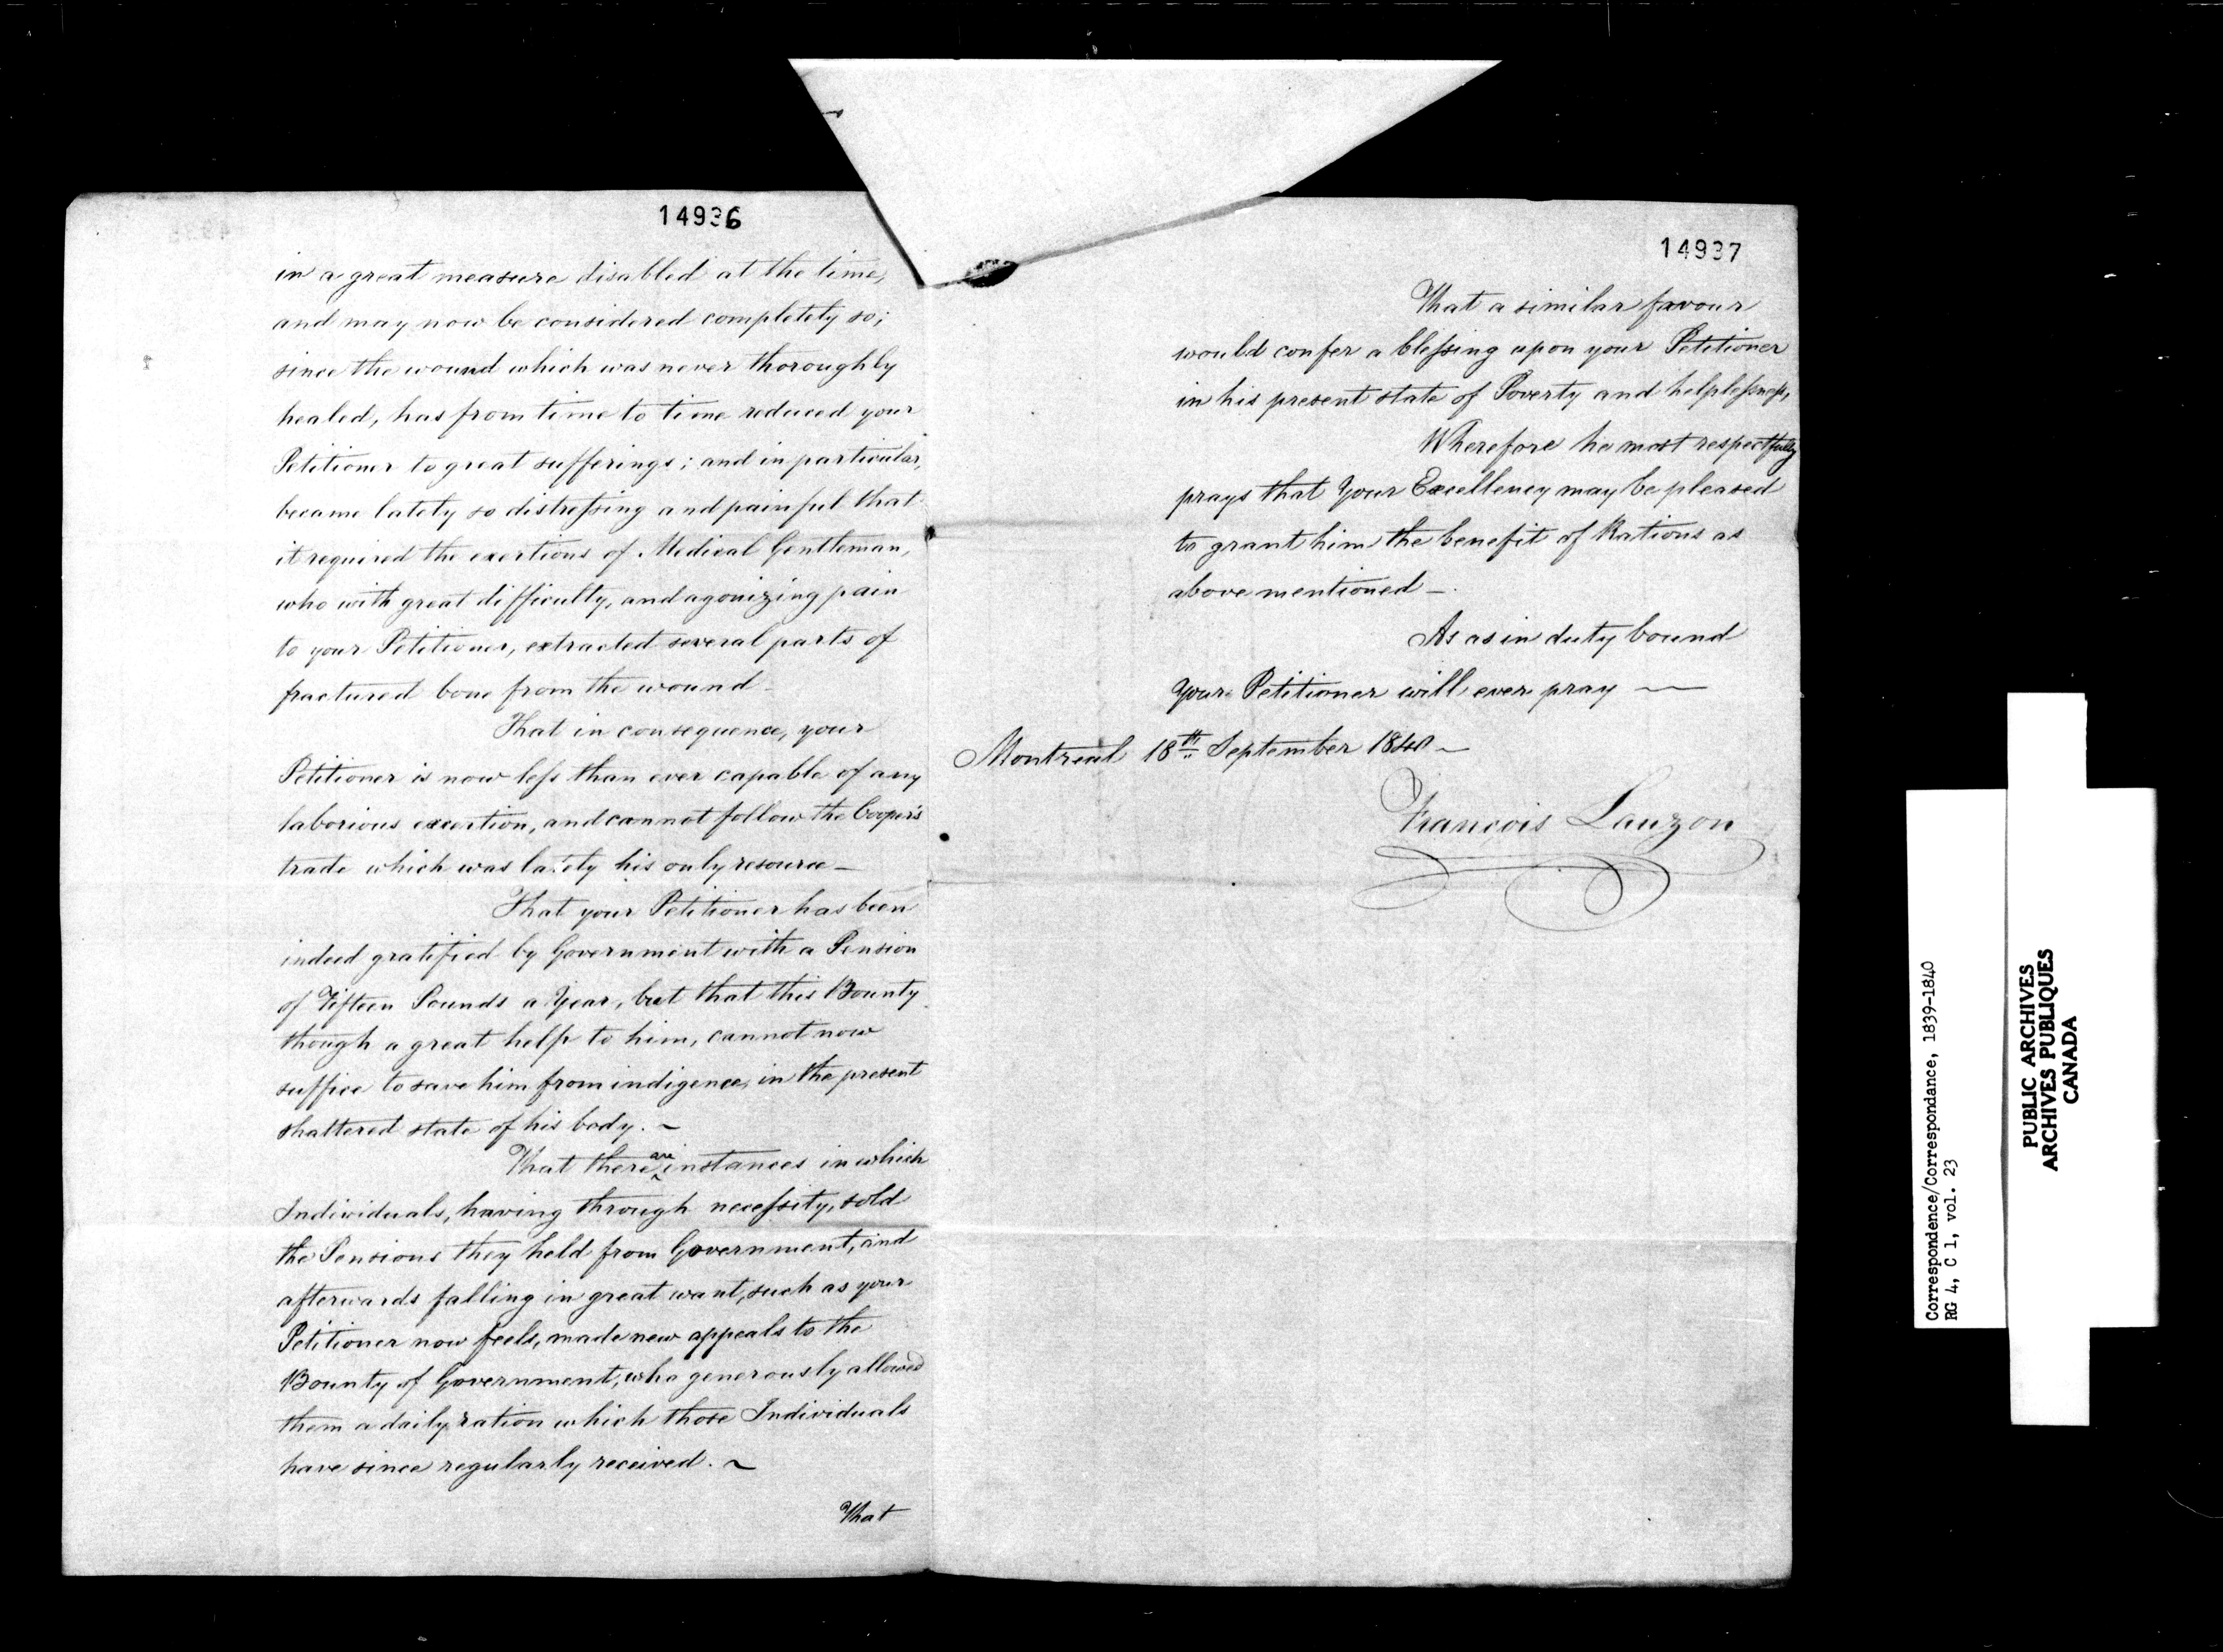 14936
in a great measure disabled at the time,
and may now be considered completely so;
since the wound which was never thoroughly
healed, has from time to time reduced your
Petitioner to great sufferings; and in particular,
became lately so distressing and painful that
it required the exertions of Medical Gentleman,
who with great difficulty, and agonizing pain
to your Petitioner, extracted several parts of
fractured bone from the wound_
That in consequence, your
Petitioner is now less than ever capable of any
laborious exertion, and cannot follow the Cooper's
trade which was lately his only resource_
That your Petitioner has been
indeed gratified by Government with a Pension
of Fifteen Pounds a Year, but that this Bounty
though a great help to him, cannot now
suffice to save him from indigence, in the present
shattered state of his body. ~
That there are instances in which
Individuals, having through necessity, sold
the Pensions they held from Government, and
afterwards falling in great want, such as your
Petitioner now feels, made new appeals to the
Bounty of Government, who generously allowed
them a daily ration which those Individuals
have since regularly received. ~
That
14937
That a similar favour
would confer a blessing upon your Petitioner
in his present state of Poverty and helplessness,
Wherefore he most respectfully
prays that Your Excellency may be pleased
to grant him the benefit of Rations as
above mentioned_
As as in duty bound
Your Petitioner will ever pray ~
Montreal 18th September 1840 ~
François Lauzon
Correspondence/Correspondance, 1839-1840
RG 4, C 1, vol. 23
PUBLIC ARCHIVES
ARCHIVES PUBLIQUES
CANADA